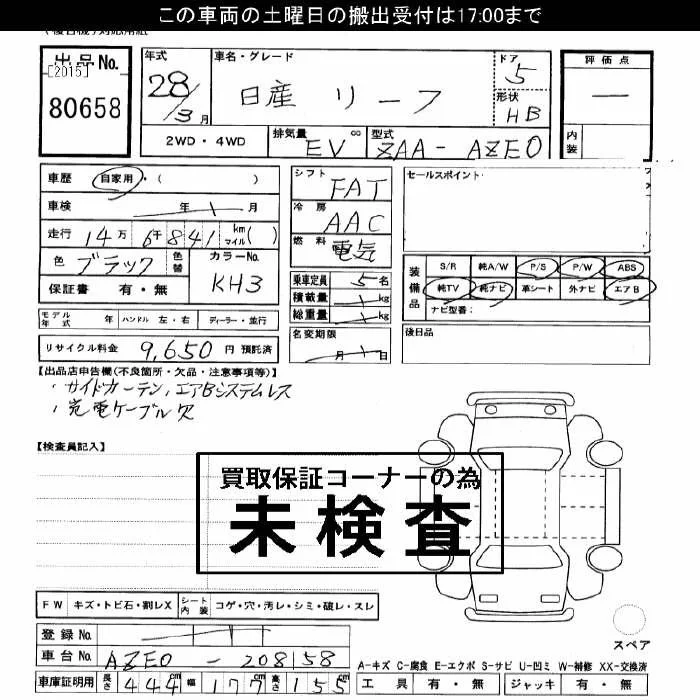 この車両の土曜日の搬出受付は17:00まで
出品No.
[2015]
80658
年式
28/3月
車名・グレード
日産 リーフ
ドア
5
形状
HB
評価点
―
内装
2WD・4WD
排気量 EV cc
型式 ZAA-AZE0
車歴 自家用・( )
車検 年 月
走行 14万6千841 km マイル( )
色 ブラック 色替
カラーNo. KH3
保証書 有・無
シフト FAT
冷房 AAC
燃料 電気
乗車定員 5名
積載量 kg
総重量 kg
名変期限
月 日
セールスポイント
装備品
S/R 純A/W P/S P/W ABS
純TV 純ナビ 革シート 外ナビ エアB
ナビ型番:
後日品
モデル年式 年 ハンドル 左・右 ディーラー・並行
リサイクル料金 9,650 円 預託済
【出品店申告欄(不良箇所・欠品・注意事項等)】
・サイドカーテン,エアBシステムレス
・充電ケーブル欠
【検査員記入】
買取保証コーナーの為
未検査
FW キズ・トビ石・割レX シート内装 コゲ・穴・汚レ・シミ・破レ・スレ
登録No.
車台No. AZE0-208158
車庫証明用 長さ 444cm 幅 177cm 高さ 155cm
スペア
A-キズ C-腐食 E-エクボ S-サビ U-凹ミ W-補修 XX-交換済
工具 有・無 ジャッキ 有・無